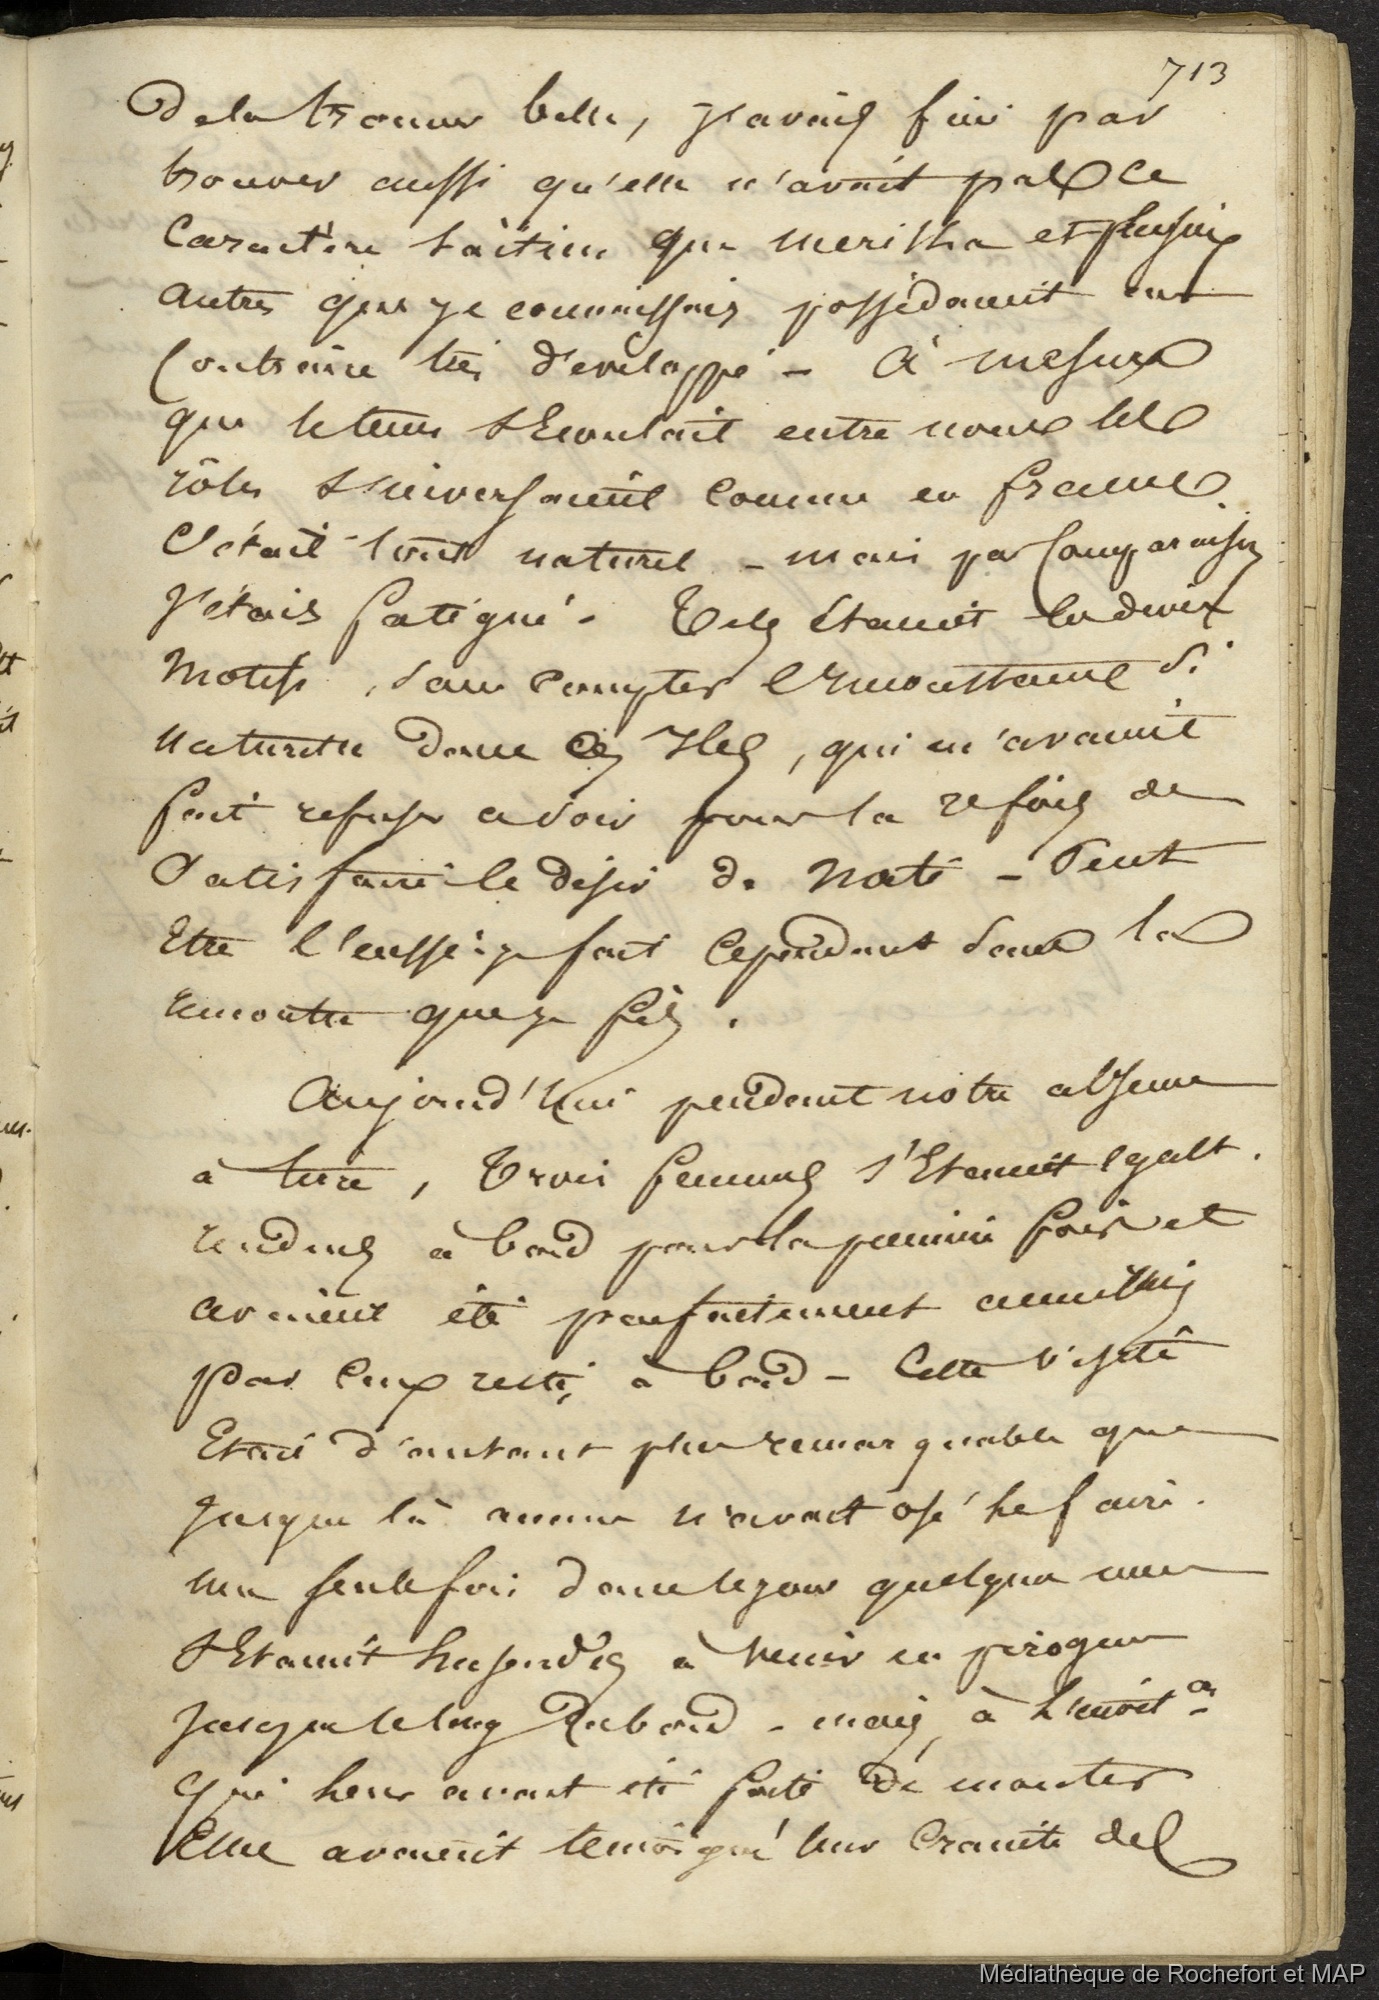 713
De la trouver belle, j'avais fini par
trouver aussi qu'elle n'avait pas ce
Caractère haïtien que Meritha et plusieurs
autres que je connaissais possédaient au
Contraire très dévéloppé - à mesure
que le tems s'écoulait entre nous les
rôles s'inversaient comme en france
C'était tout naturel - mais par Comparaison
J'étais fatigué. Tels étaient les deux
Motifs, sans compter l'inconstance si
naturelle dans ces Iles, qui m'avaient
fait refuser ce soir pour la 2e fois de
Satisfaire le désir de Naté - Peut
Etre l'eussé-je fait cependant sans la
rencontre que je fis.
Aujourd'hui pendant notre absence
à terre, Trois femmes s'Etaient egalt.
rendues à bord pour la première fois et
avaient été parfaitement accueillies
par Ceux restés à bord - Cette visite
Etait d'autant plus remarquable que
jusque là aucune n'avait osé le faire.
une seule fois dans le jour quelques unes
s'Etaient hasardées à venir en pirogue
jusque le long Du bord - mais, à l'invit.on
qui leur avait été faite de monter
Elles avaient témoigné leur Crainte des
Médiathèque de Rochefort et MAP